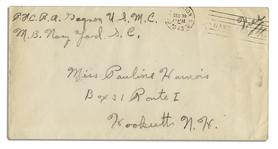 Pfc. R.A. Gagnon U.S.M.C.
M.B. Navy Yard S.C.
Miss Pauline Harnois
Box 31 Route 1
Hooksett N.H.